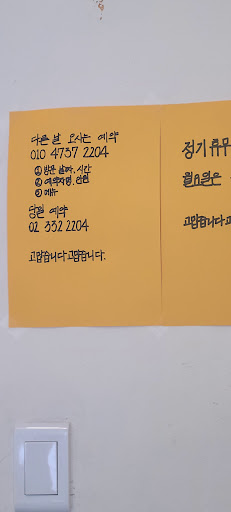 다른 날 오시는 예약
010 4737 2204
① 방문 날짜, 시간
② 예약자명, 인원
③ 메뉴
당일 예약
02 332 2204
고맙습니다 고맙습니다.
정기휴무
월요일은
고맙습니다 고